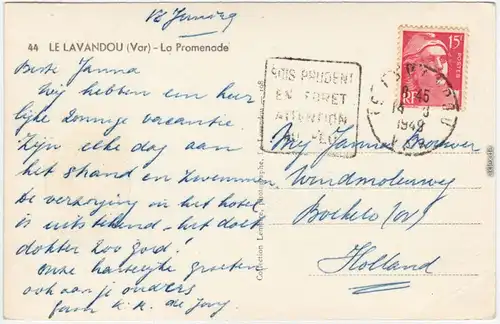 44 LE LAVANDOU (Var) - La Promenade
Beste Janna
Wij hebben een heer
lijke zonnige vacantie.
Zijn elke dag aan
het strand en zwemmen
De verzorging in het hotel
is uitstekend. het doet
dokter zoo goed!
Onze hartelijke groeten
ook aan je ouders
fam K. K. de Jong
SOIS PRUDENT
EN FORET
ATTENTION
AU FEU
15F
POSTES
RF
1949
VAR
Mej Janna Brouwer
Windmolenweg
Boekelo (OV)
Holland